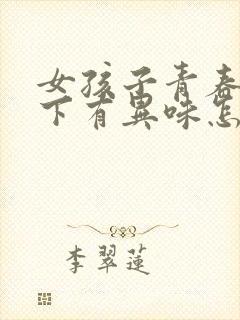 女孩子青春
下有異味怎
李翠蓮